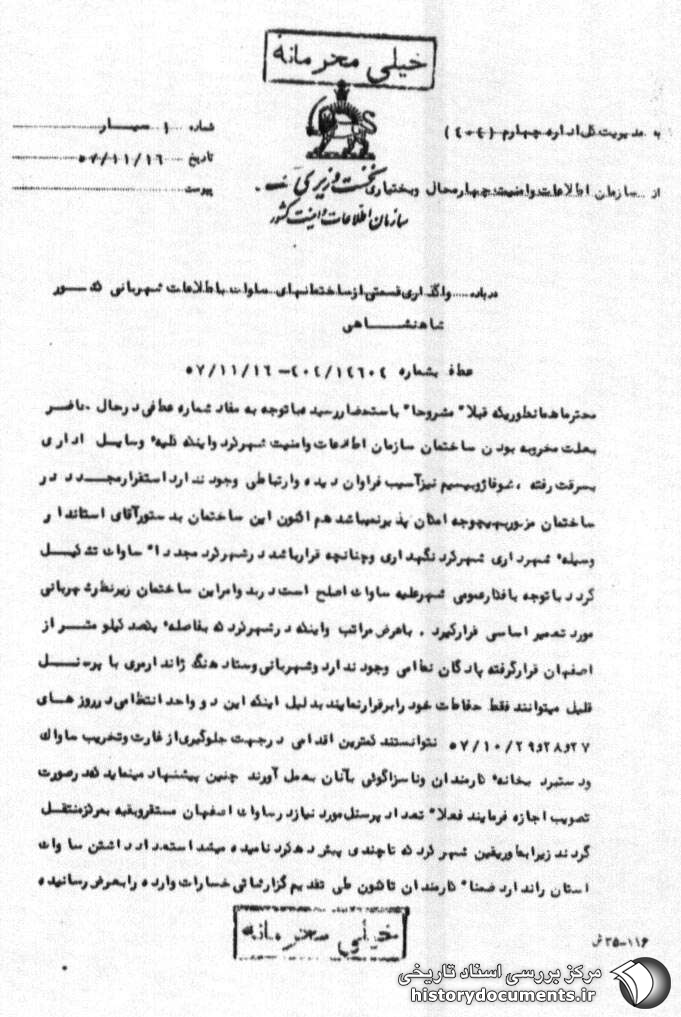 خیلی محرمانه
به مدیریت کل اداره چهارم (۴۰۴)
شماره ۱ سیار
تاریخ ۵۷/۱۱/۱۶
از سازمان اطلاعات وامنیت چهارمحال وبختیاری
پیوست
نخست وزیری
سازمان اطلاعات و امنیت کشور
درباره واگذاری قسمتی از ساختمانهای ساواک با طلاعات شهربانی کشور
شاهنشاهی
عطف بشماره ۴۰۴/۱۴۶۰۴-۵۷/۱۱/۱۶
محترما همانطوریکه قبلا" مشروحا" باستحضار رسیده با توجه به مفاد شماره عطفی درحال حاضر
بعلت مخروبه بودن ساختمان سازمان اطلاعات وامنیت شهرکرد واینکه کلیه وسایل اداری
بسرقت رفته ، شوفاژوبیسیم نیزآسیب فراوان دیده وارتباطی وجود ندارد استقرارمجدد در
ساختمان مزبوربهیچوجه امکان پذیرنمیباشد هم اکنون این ساختمان بدستورآقای استاندار
وسیله شهرداری شهرکرد نگهداری وچنانچه قرارباشد درشهرکرد مجددا" ساواک تشکیل
گردد با توجه بافکارعمومی شهرعلیه ساواک اصلح است دربدوامراین ساختمان زیرنظرشهربانی
مورد تعمیر اساسی قرارگیرد . باعرض مراتب واینکه درشهرکرد که بفاصله یکصد کیلو متر از
اصفهان قرارگرفته پادگان نظامی وجود ندارد وشهربانی وستاد هنگ ژاندارمری با پرسنل
قلیل میتوانند فقط حفاظت خود رابرقرارنمایند بدلیل اینکه این دو واحد انتظامی درروزهای
۲۷و۲۸و۵۷/۱۰/۲۹ نتوانستند کمترین اقدامی درجهت جلوگیری از غارت وتخریب ساواک
ودستبرد بخانه کارمندان وناسزاگوئی بآنان بعمل آورند چنین پیشنهاد مینماید که درصورت
تصویب اجازه فرمایند فعلا" تعداد پرسنل مورد نیازد رساواک اصفهان مستقروبقیه بمرکزمنتقل
گردند زیرابطوریقین شهرکرد که تاچندی پیش دهکرد نامیده میشد استعداد داشتن ساواک
استان راندارد ضمنا" کارمندان تاکنون طی تقدیم گزارشاتی خسارات وارده رابعرض رسانیده
خیلی محرمانه
۳۵-۱۱۶ ش
مرکز بررسی اسناد تاریخی
historydocuments.ir